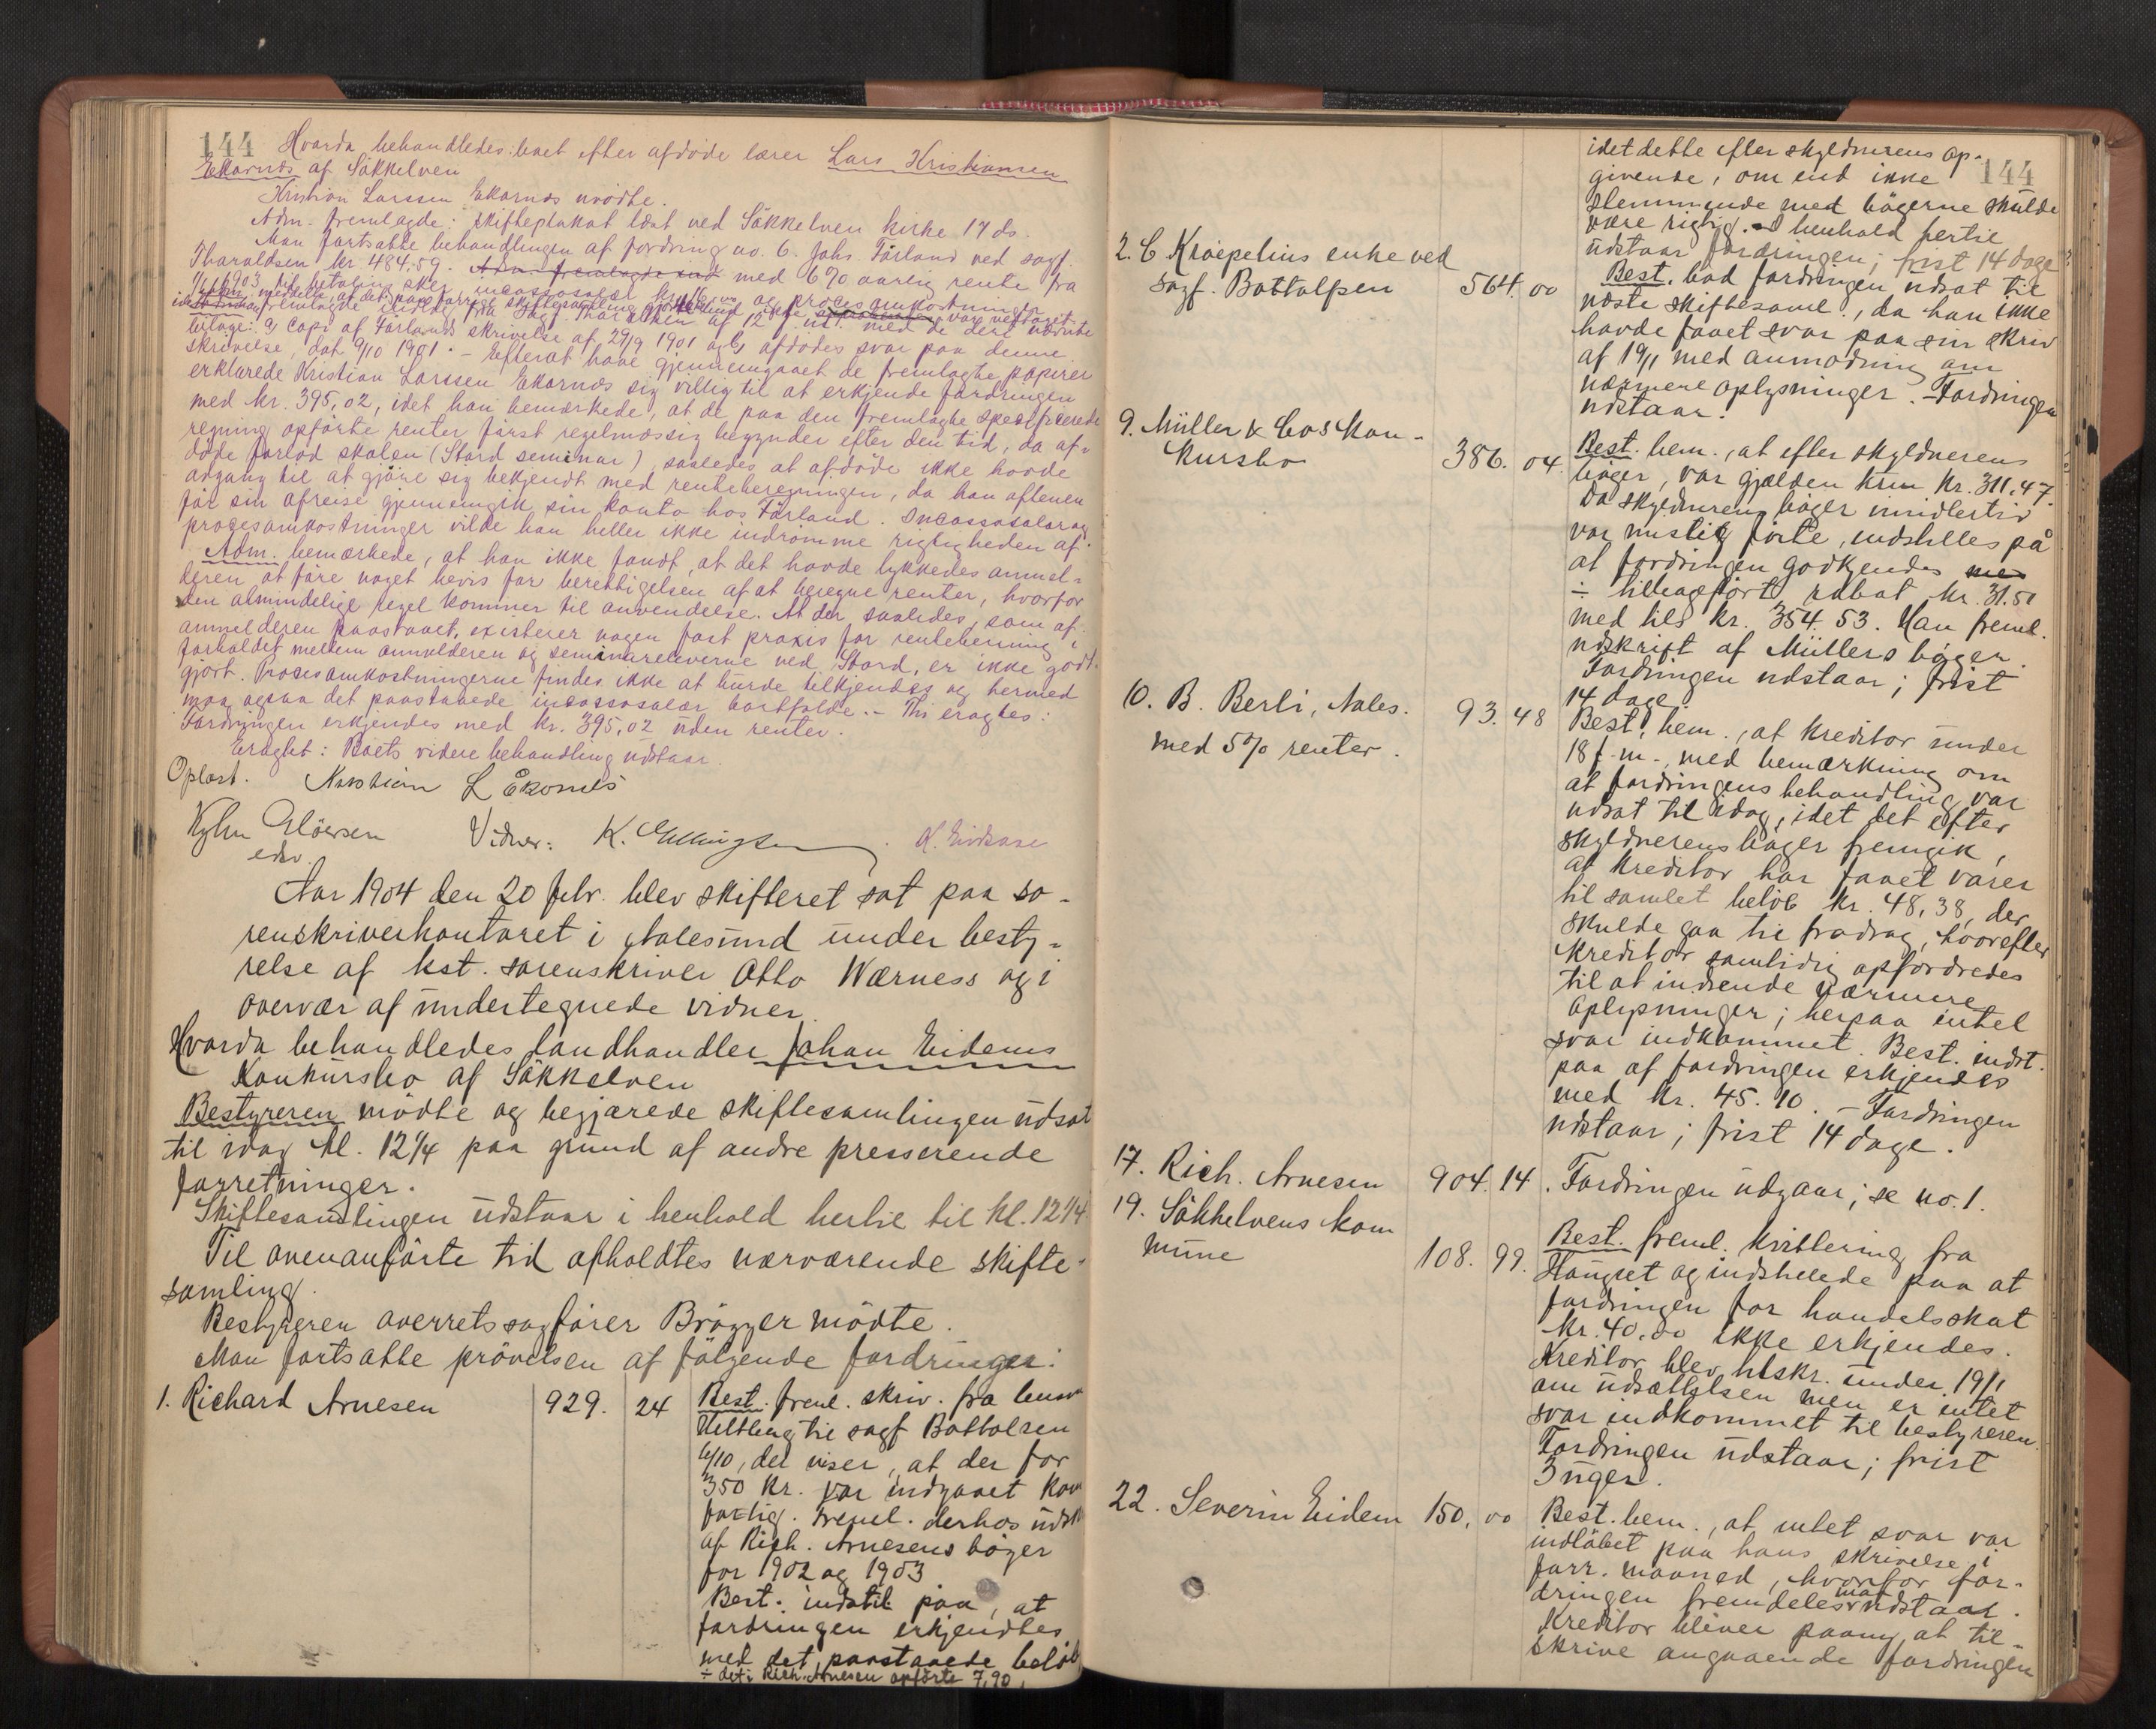 144 Hvorda behandledes boet efter afdöde lærer Lars Kristiansen
Ekornæs af Sökkelven
Kristian Larssen Ekornæs mödte.
Adm. fremlagde: skifteplakat læst ved Sökkelven kirke 17 ds.
Man fortsatte behandlingen af fordring no. 6. Johs. Förland ved sagf.
Tharaldsen kr 484,59. Adm. fremlagde med 6% aarlig rente fra
1903 til betaling sker, incassosalær og procesomkostninger
fremlagde indlæg fra sagf. Tharaldsen af 12 f. m. med de deri nævnte
bilage: a) copi af Förlands skrivelse af 29/9 1901 og b) afdödes svar paa denne
skrivelse, dat 9/10 1901. – Efterat have gjennemgaaet de fremlagte papirer
erklærede Kristian Larssen Ekornæs sig villig til at erkjende fordringen
med kr. 395,02, idet han bemærkede, at de paa den fremlagte specificerede
regning opförte renter först regelmæssig begynder efter den tid, da af-
döde forlod skolen (Stord seminar), saaledes at afdöde ikke havde
adgang til at gjöre sig bekjendt med renteberegningen, da han aftenen
för sin afreise gjennemgik sin konto hos Förland. Incassosalær og
procesomkostninger vilde han heller ikke indrömme rigtigheden af.
Adm. bemærkede, at han ikke fandt, at det havde lykkedes anmel-
deren at före noget bevis for berettigelsen af at beregne renter, hvorfor
den almindelige regel kommer til anvendelse. At der, saaledes, som af
anmelderen paastaaet, existerer nogen fast praxis for renteberegning i
forholdet mellem anmelderen og seminareleverne ved Stord, er ikke godt-
gjort. Procesomkostningerne findes ikke at burde tilkjendes og hermed
maa ogsaa det paastaaede incassosalær bortfalde. – Thi eragtes:
Fordringen erkjendes med kr. 395,02 uden renter.
Eragtet: Boets videre behandling udstaar.
Oplæst. Kristian L Ekornæs
Vidner: K. Ellingsen
Aar 1904 den 20 febr. blev skifteret sat paa so-
renskriverkontoret i Aalesund under besty-
relse af kst. sorenskriver Otto Wærness og i
overvær af undertegnede vidner.
Hvorda behandledes landhandler Johan Eidems
Konkursbo af Sökkelven
Bestyreren mödte og begjærede skiftesamlingen udsat
til idag kl. 12 1/4 paa grund af andre presserende
forretninger.
Skiftesamlingen udstaar i henhold hertil til kl. 12 1/4
Til ovenanförte tid afholdtes nærværende skifte-
samling.
Bestyreren overretssagförer Brögger mödte.
Man fortsatte prövelsen af fölgende fordringer:
1. Richard Arnesen 929. 24 Best. freml. skriv. fra
til sagf Bottolfsen
6/10, der viser, at der for
350 kr. var indgaaet
forlig. Freml. derhos
af Rich. Arnesens böger
for 1902 og 1903
Best. indstil paa, at
fordringen erkjendtes
med det paastaaede belöb
÷ det i Rich. Arnesen opförte 7,90,
144
idet dette efter skyldnerens op-
givende, om end ikke
stemmende med bögerne skulde
være rigtig. I henhold hertil
udstaar fordringen; frist 14 dage
2. C. Kræpelius enke ved
sagf. Bottolfsen 564. 00
Best. bad fordringen udsat til
næste skiftesaml., da han ikke
havde faaet svar paa sin skriv
af 19/1 med anmodning om
nærmere oplysninger. – Fordringen
udstaar.
9. Müller & Co's Kon-
kursbo 386. 04.
Best. bem., at efter skyldnerens
böger, var gjælden kun kr. 311,47.
Da skyldnerens böger imidlertid
var mislig förte, indstilles på
at fordringen godkjendes med
÷ tilbageført rabat kr. 31.51
med tils kr. 354.53. Han freml.
udskrift af Müllers böger.
Fordringen udstaar; frist
14 dage
10. B. Berli, Aales. 93. 48
med 5% renter.
Best. bem., at kreditor under
18 f. m., med bemærkning om
at fordringens behandling var
udsat til idag, idet det efter
skyldnerens böger fremgik,
at kreditor har faaet varer
til samlet belöb kr. 48,38, der
skulde gaa til fradrag, hvorefter
kreditor samtidig opfordredes
til at indsende nærmere
oplysninger; herpaa intet
svar indkommet. Best. indst.
paa at fordringen erkjendes
med kr. 45.10. – Fordringen
udstaar; frist 14 dage.
17. Rich. Arnesen 904. 14. Fordringen udgaar; se no. 1.
19. Sökkelvens kom
mune 108. 99.
Best. freml. kvittering fra
Haugset og indstillede paa at
fordringen for handelsskat
kr. 40.00 ikke erkjendes.
Kreditor blev tilskr. under 19/1
om udsættelsen men er intet
svar indkommet til bestyreren
Fordringen udstaar; frist
3 uger.
22. Severin Eidem 150, 00
Best. bem., at intet svar var
indlöbet paa hans skrivelse i
forr. maaned, hvorfor for-
dringen fremdeles maa udstaar.
Kreditor bliver paany at til-
skrive angaaende fordringen